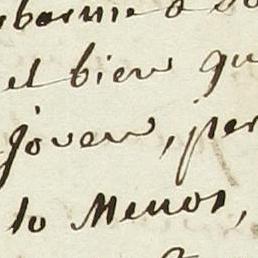 el bien qu
joven, per
lo Menos,